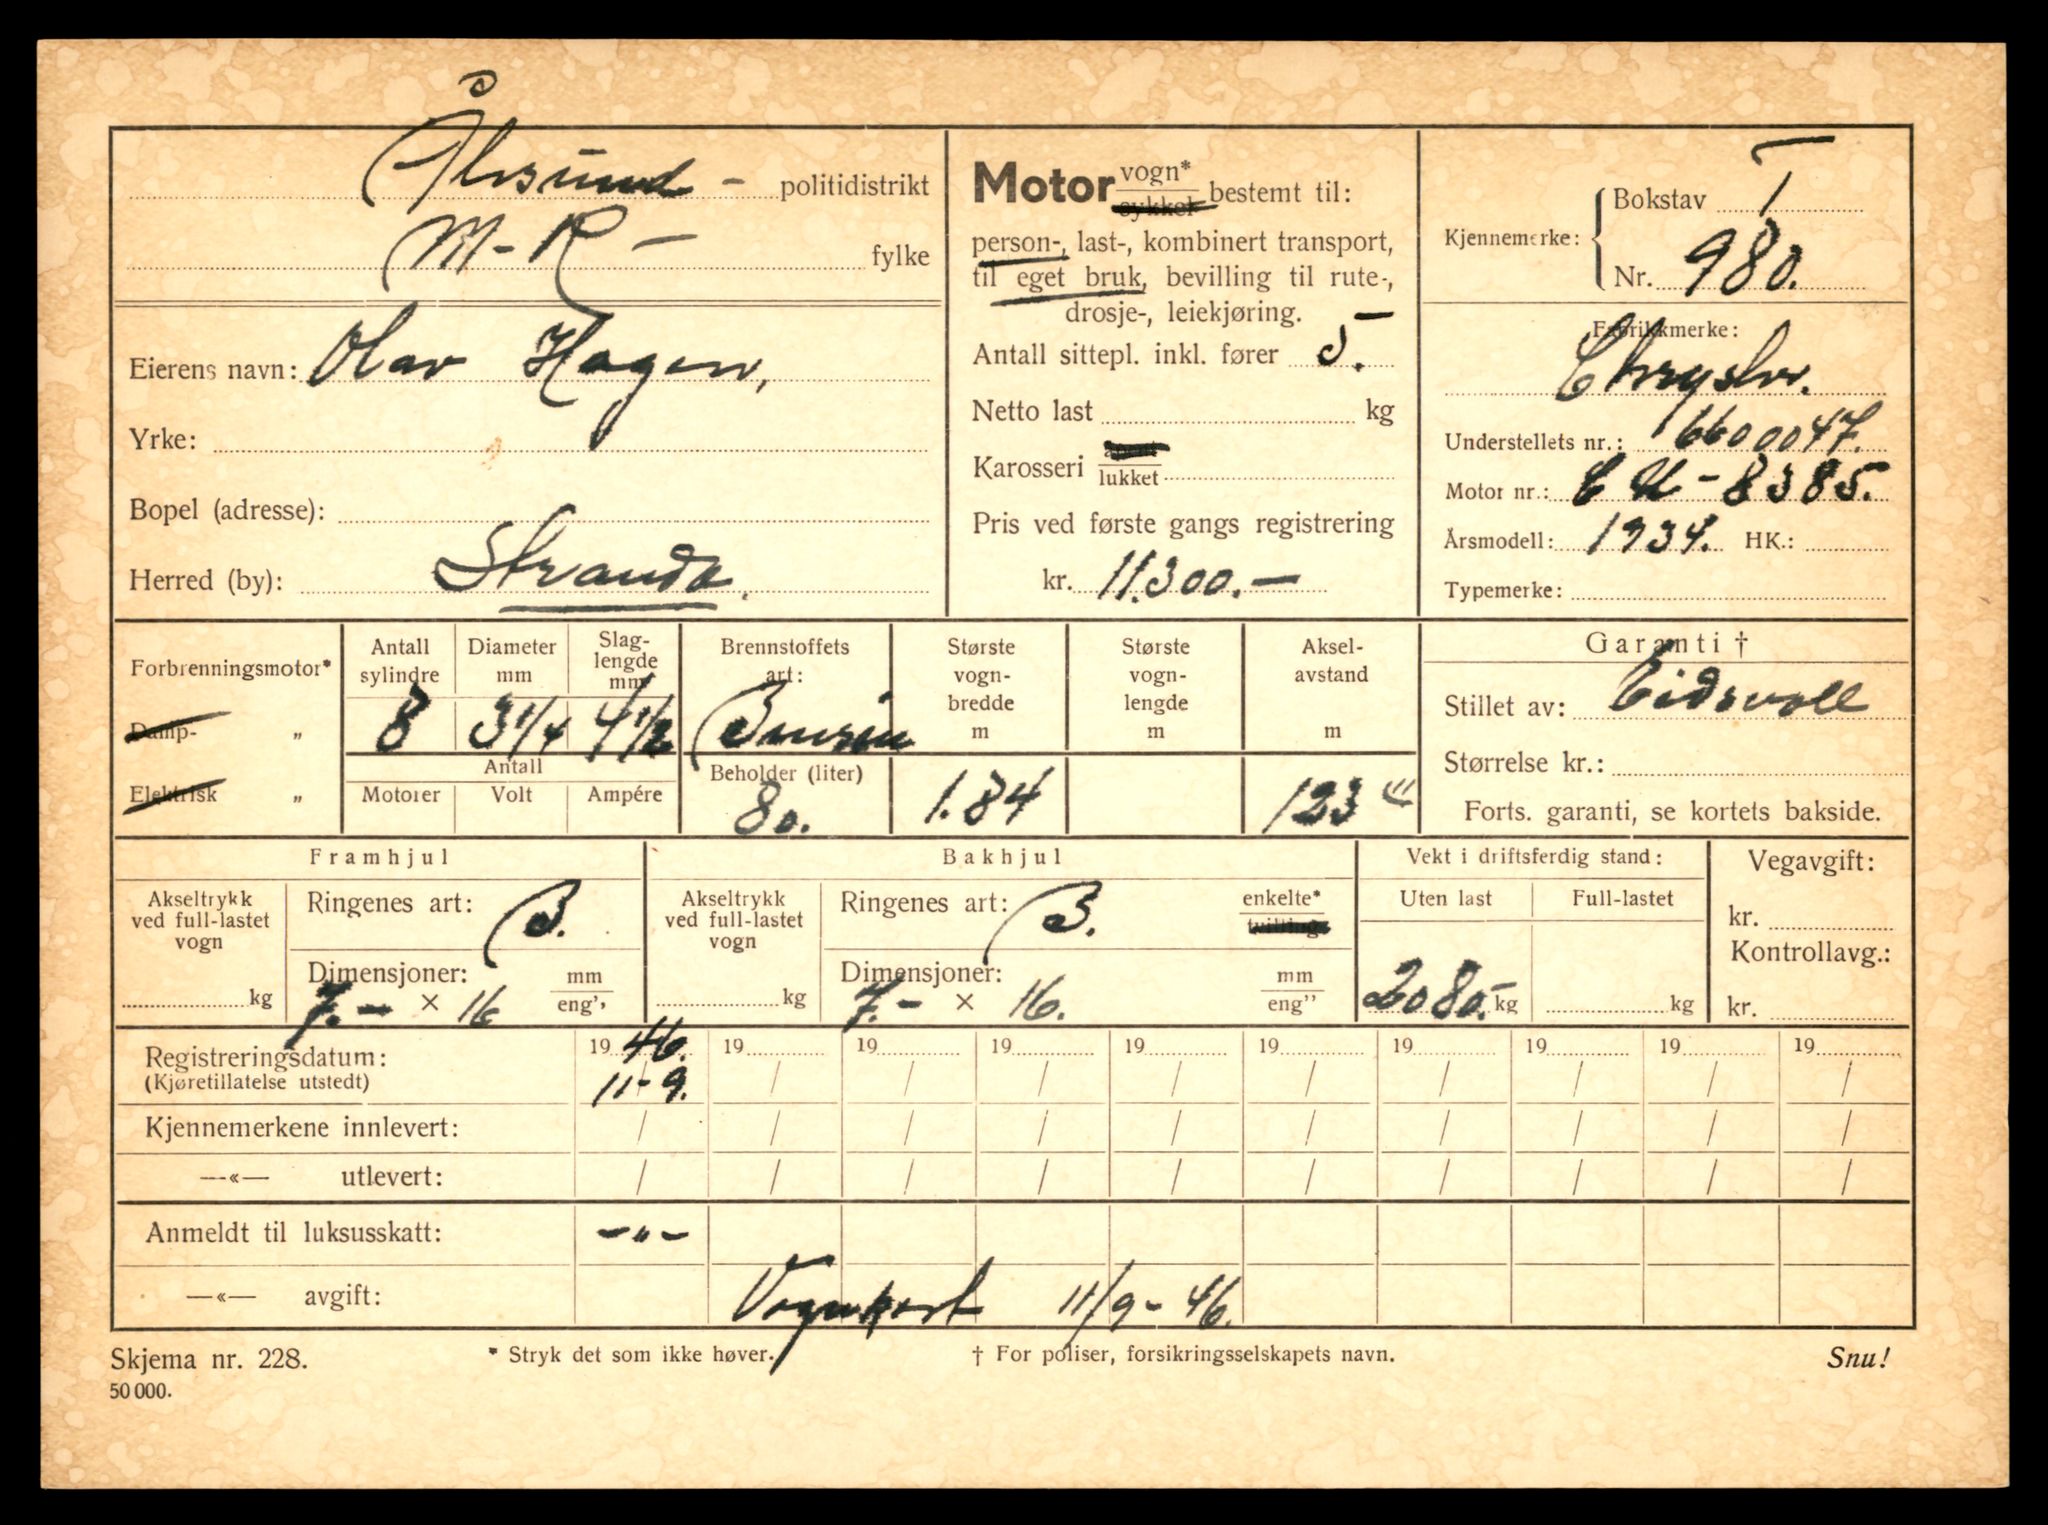 Ålesund - politidistrikt
M-R - fylke
Eierens navn: Olav Hagen,
Yrke:
Bopel (adresse):
Herred (by): Stranda.
Motor vogn* sykkel bestemt til:
person-, last-, kombinert transport,
til eget bruk, bevilling til rute-,
drosje-, leiekjøring.
Antall sittepl. inkl. fører 5.
Netto last kg
Karosseri lukket
Pris ved første gangs registrering
kr. 11.300.-
Kjennemerke: Bokstav T
Nr. 980.
Fabrikkmerke:
Chrysler.
Understellets nr.: 6600047.
Motor nr.: CU-8385.
Årsmodell: 1934. HK.:
Typemerke:
Forbrenningsmotor*
Damp- „
Elektrisk „
Antall sylindre
8
Diameter mm
3 1/4
Slag-lengde mm
4 1/2
Antall
Motorer Volt Ampére
Brennstoffets art:
Bensin
Beholder (liter)
80.
Største vogn-bredde m
1.84
Største vogn-lengde m
Aksel-avstand m
123"
Garanti †
Stillet av: Eidsvoll
Størrelse kr.:
Forts. garanti, se kortets bakside.
Framhjul
Akseltrykk ved full-lastet vogn
kg
Ringenes art: B.
Dimensjoner: mm
7.- × 16 eng''
Bakhjul
Akseltrykk ved full-lastet vogn
kg
Ringenes art: B. enkelte* tvilling
Dimensjoner: mm
7.- × 16. eng''
Vekt i driftsferdig stand:
Uten last Full-lastet
2080.- kg kg
Vegavgift:
kr.
Kontrollavg.:
kr.
Registreringsdatum: 1946. 19 19 19 19 19 19 19 19 19
(Kjøretillatelse utstedt) 11-9. / / / / / / / / /
Kjennemerkene innlevert: / / / / / / / / / /
—«— utlevert: / / / / / / / / / /
Anmeldt til luksusskatt: -"-
—«— avgift: Vognkort 11/9-46.
Skjema nr. 228.
50 000.
* Stryk det som ikke høver.
† For poliser, forsikringsselskapets navn.
Snu!